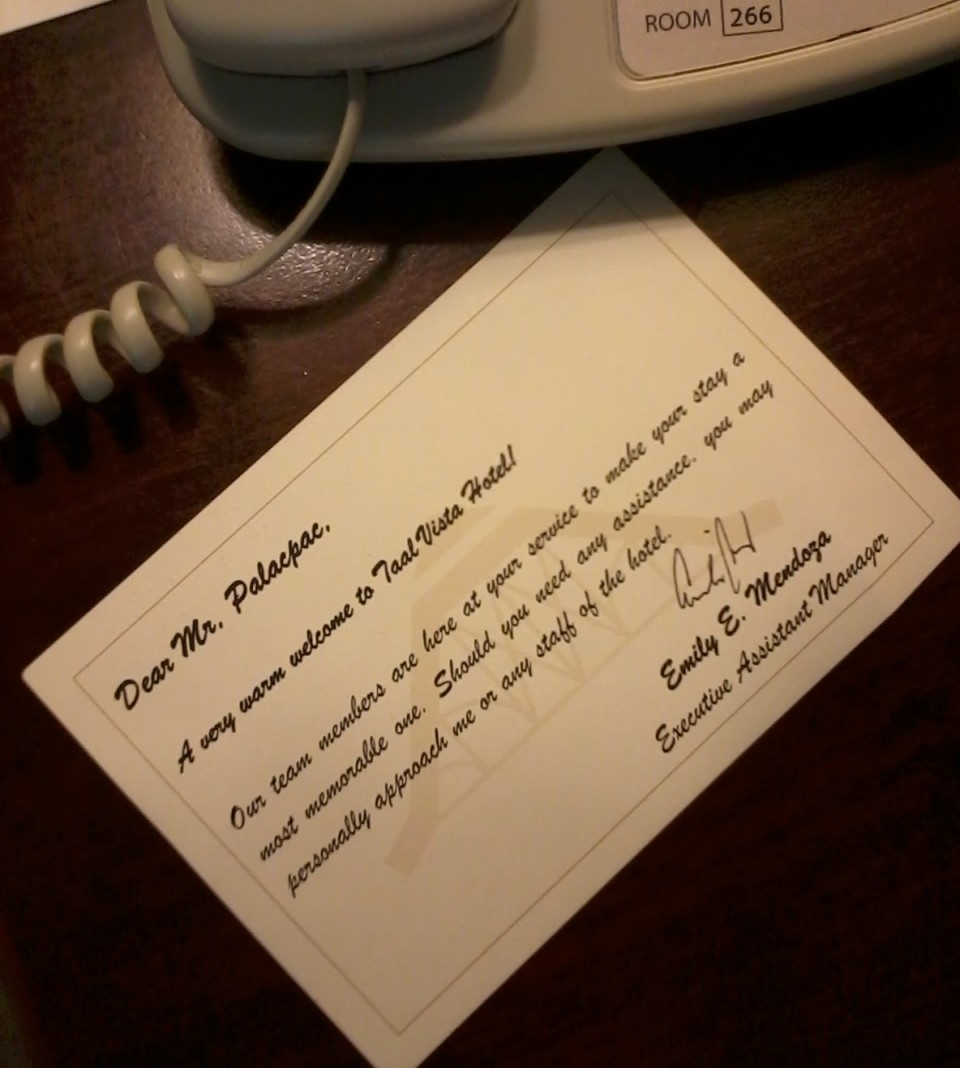 ROOM 266
Dear Mr. Palacpac,
A very warm welcome to Taal Vista Hotel!
Our team members are here at your service to make your stay a
most memorable one. Should you need any assistance, you may
personally approach me or any staff of the hotel.
Emily E. Mendoza
Executive Assistant Manager